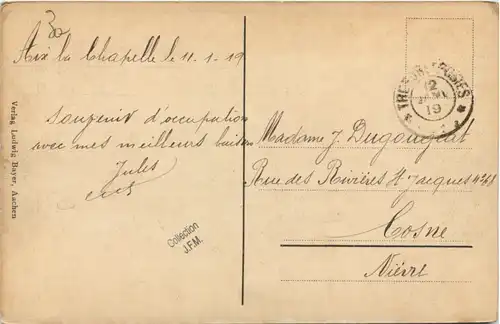 32
Aix la Chapelle le 11-1-19
Souvenir d'occupation
avec mes meilleurs baisers
Jules
Verlag Ludwig Bayer, Aachen
Collection
J.F.M.
TRESOR ET POSTES
12
19
Madame J. Dugougeat
Rue des Rivières St Jacques
Cosne
Nièvre